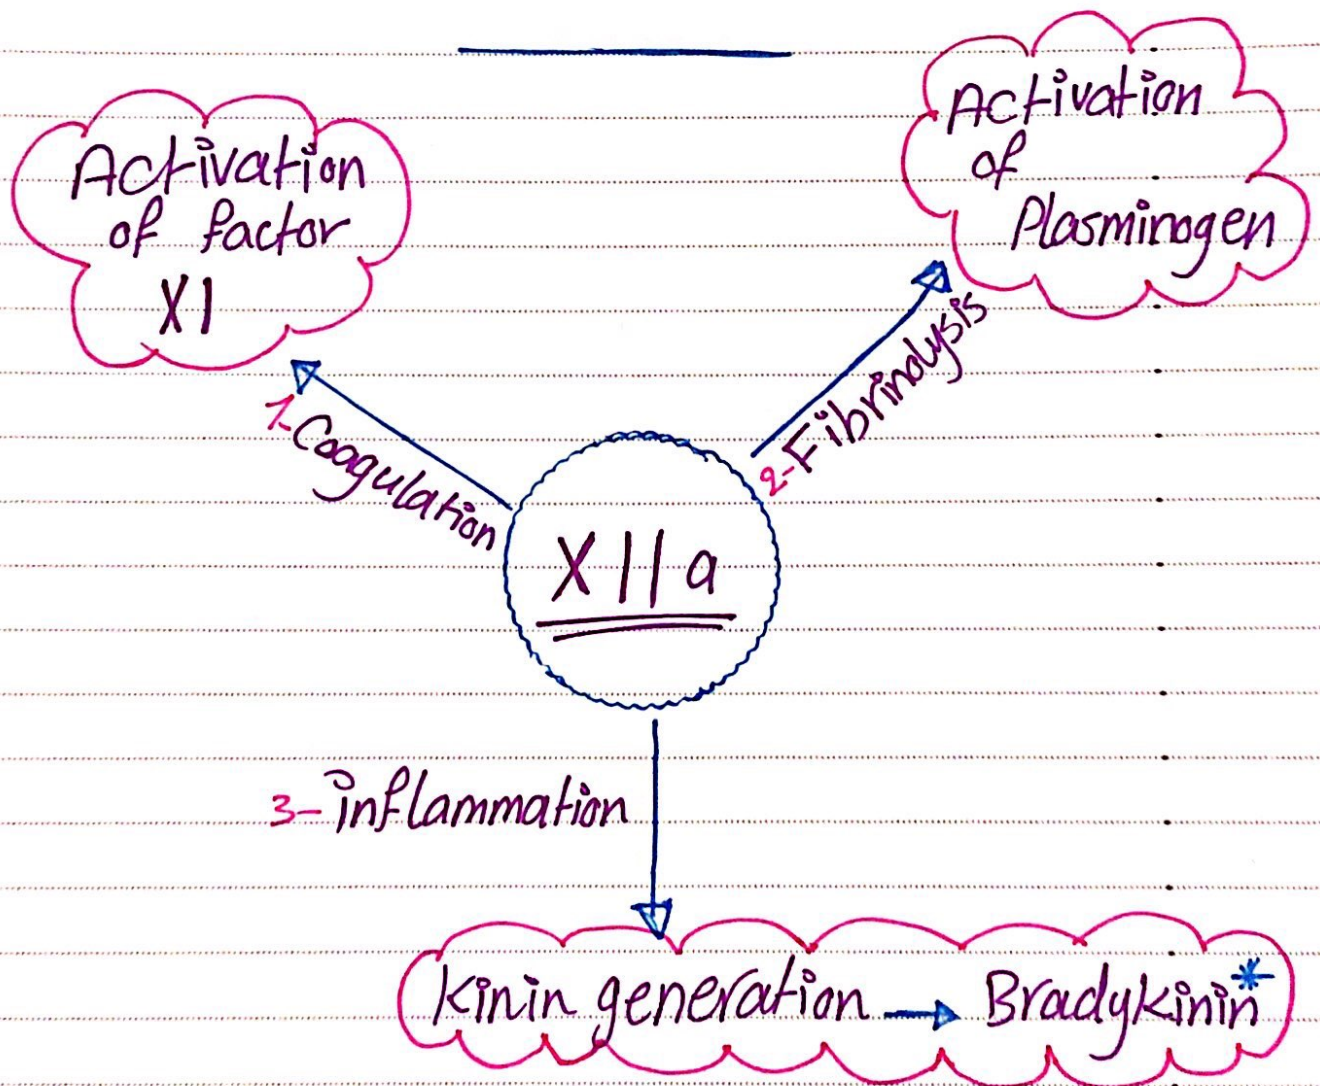 Activation
of factor
XI
Activation
of
Plasminogen
1-Coagulation
2-Fibrinolysis
XIIa
3-inflammation
Kinin generation → Bradykinin*